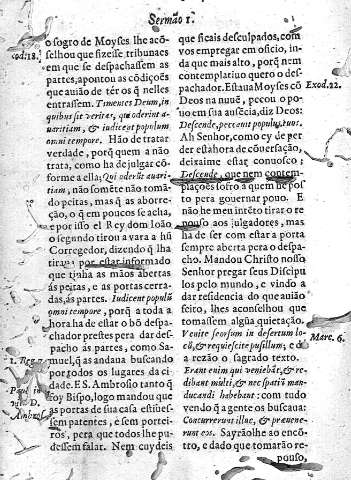 Sermão 1.
o sogro de Moyses lhe acõ-
selhou que fizesse tribunaes
em que despachassem as
partes, apontou as cõdiçoẽs
que auião de ter os q̃ nelles
entrassem. Timentes Deum, in
quibus sit veritas, qui oderint a-
uaritiam, & iudicent populum
omni tempore. Hão de tratar
verdade, porquẽ quem a não
trata, como ha de julgar cõ-
forme a ella; Qui oderit auari-
tiam, não somẽte não toma-
do peitas, mas q̃ as aborre-
ção, o q̃ em poucos se acha,
e por isso el Rey dom Ioão
o segundo tirou a vara a hũ
Corregedor, dizendo q̃ lha
tiraua por estar informado
que tinha as mãos abertas
ás peitas, e as portas cerra-
das, ás partes. Iudicent populũ
omni tempore, porq̃ a toda a
hora ha de estar o bõ despa-
chador prestes pera dar des-
pacho ás partes, como Sa-
muel, q̃ as andaua buscando
por todos os lugares da ci-
dade. E S. Ambrosio tanto q̃
foy Bispo, logo mandou que
as portas de sua casa estiues-
sem patentes, e sem portei-
ros, pera que todos lhe pu-
dessem falar. Nem cuydeis
Exod. 18.
1. Reg. 7
Ambros.
que ficais desculpados, com
vos empregar em oficio, in-
da que mais alto, porq̃ nem
contemplatiuo quero o des-
pachador. Estaua Moyses cõ
Deos na nuuẽ, peccou o po-
uo em sua ausẽcia, diz Deos:
Descende, peccauit populus tuus.
Ah Senhor, como ey de per
der estahora de cõuersação,
deixaime estar conuosco;
Descende, que nem contem-
plaçoẽs sofro a quem he pos-
to pera governar pouo. E
não he meu intẽto tirar o re
pouso aos julgadores, mas
ha de ser com estar a porta
sempre aberta pera o despa-
cho. Mandou Christo nosso
Senhor pregar seus Discipu
los pelo mundo, e vindo a
dar residencia do que auião
feito, lhes aconselhou que
tomassem algũa quietação.
Venite seorsum in desertum lo-
cũ, & requiescite pusillum; e dá
a rezão o sagrado texto.
Erant enim qui veniebãt, & re-
dibant multi, & nec spatiũ man-
ducandi habebant: com tudo
vendo q̃ a gente os buscaua:
Concurrerunt illuc, & præuene-
runt eos. Sayrãolhe ao encõ-
tro, e dado que tomarão re-
pouso,
Exod. 22.
Marc. 6.